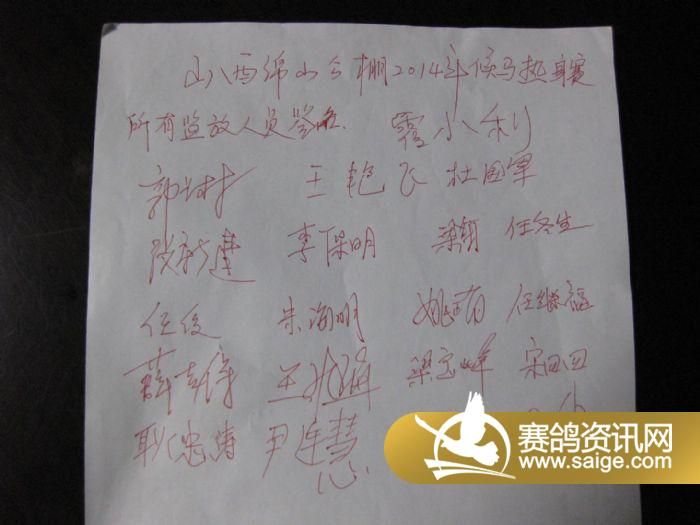 山西绵山公棚2014年候马热身赛
所有监放人员签名. 霍小利
郭 王艳飞 杜国军
段新建 李保明 梁翔 任冬生
任俊 朱海明 姚 任继福
薛 王 梁宝峰 宋四四
耿忠涛 尹连慧
赛鸽资讯网
www.saige.com